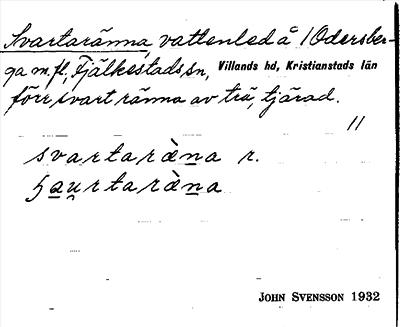 Svartaränna, vattenled å 1 Odersber-
ga m.fl., Fjälkestads sn, Villands hd, Kristianstads län
förr svart ränna av trä, tjärad.
11
svartarὰna r.
John Svensson 1932